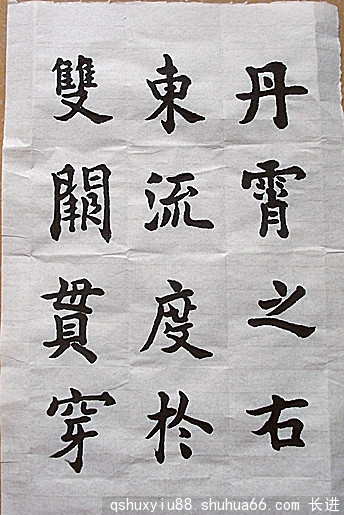 丹霄之右
東流度於
雙闕貫穿
qshuxyiu88.shuhua66.com 长进